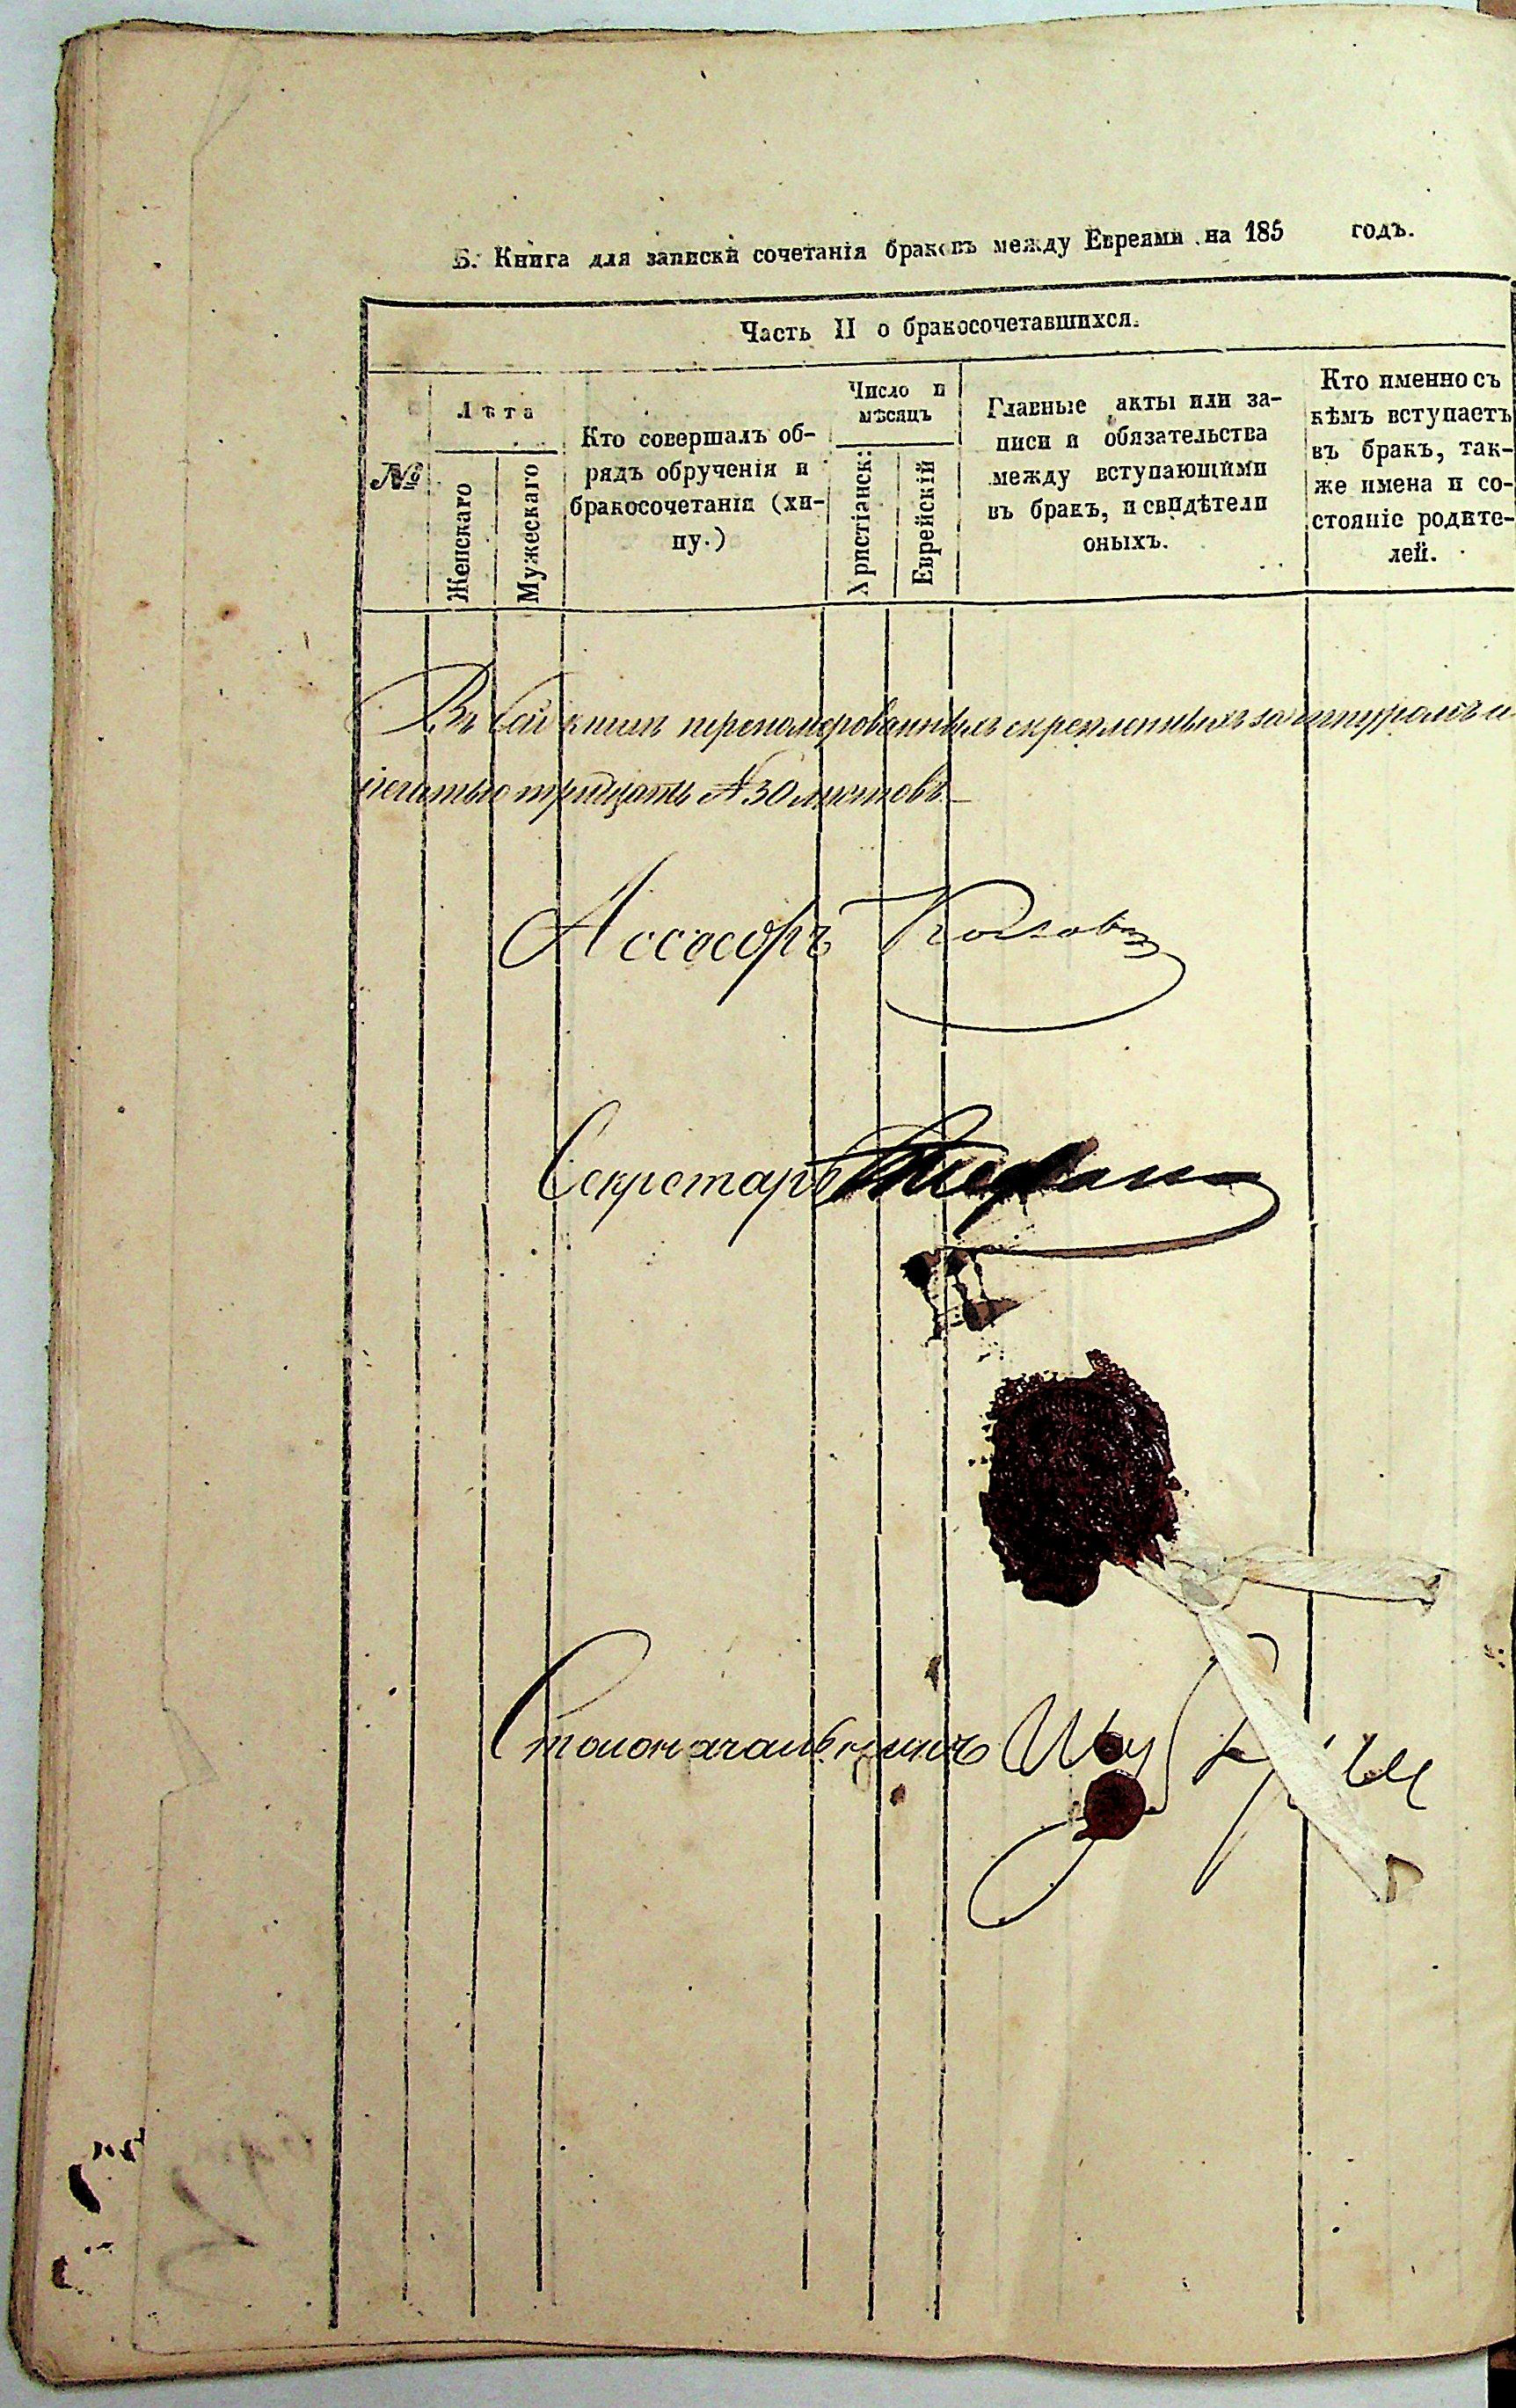 Б. Книга для записки сочетанія браковъ между Евреями на 185 годъ.
Часть II о бракосочетавшихся.
№
Лѣта
Женскаго
Мужескаго
Кто совершалъ об-
рядъ обрученія и
бракосочетанія (хи-
пу.)
Число и
мѣсяцъ
Христіанск:
Еврейскій
Главные акты или за-
писи и обязательства
между вступающими
въ бракъ, и свидѣтели
оныхъ.
Кто именно съ
кѣмъ вступаетъ
въ бракъ, так-
же имена и со-
стояніе родите-
лей.
Въ сей книгѣ перенумерованныхъ скрепленныхъ за шнуромъ и
печатью тридцать №30 листовъ
Ассесоръ
Секретарь
Столоначальникъ